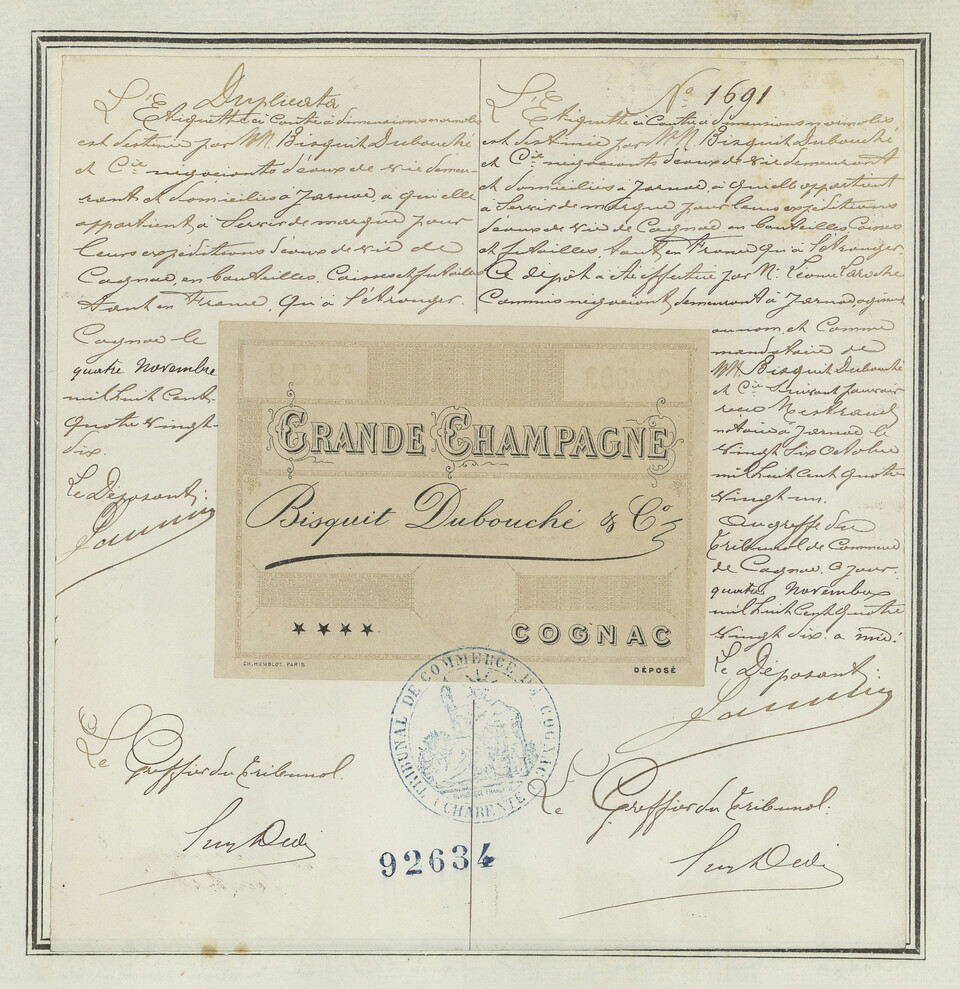 Duplicata
L'Etiquette ci contre à dimensions variables
est destinée par MM. Bisquit Dubouché
et Cie négociants d'eaux de vie demeu-
rant et domiciliés à Jarnac, à qui elle
appartient à Servir de marque pour
leurs expéditions d'eaux de vie de
Cognac, en bouteilles, Caisses et futailles
tant en France qu'à l'étranger.
Cognac le
quatre Novembre
mil huit cent
quatre vingt-
dix.
Le Déposant:
Le Greffier du Tribunal.
No 1691
L'Etiquette ci Contre à dimensions variables
est destinée par MM. Bisquit Dubouché
et Cie négociants d'eaux de vie demeurant
et domiciliés à Jarnac, à qui elle appartient
à Servir de marque pour leurs expéditions
d'eaux de vie de Cognac en bouteilles Caisses
et futailles, tant en France qu'à l'étranger.
Ce dépôt a été effectué par M. Léonce Laroche
Commis négociant, demeurant à Jarnac, agissant
au nom et Comme
mandataire de
MM. Bisquit Dubouché
et Cie Suivant pouvoir
reçu
notaire à Jarnac le
Vingt Six Octobre
mil huit cent quatre
Vingt un.
Au greffe du
Tribunal de Commerce
de Cognac. Ce jour.
quatre Novembre
mil huit Cent quatre
Vingt dix. à midi.
Le Déposant:
Le Greffier du Tribunal.
GRANDE CHAMPAGNE
Bisquit Dubouché & Co
★★★★ COGNAC
CH. HUMBLOT. PARIS DÉPOSÉ
TRIBUNAL DE COMMERCE DE COGNAC
(CHARENTE)
92634